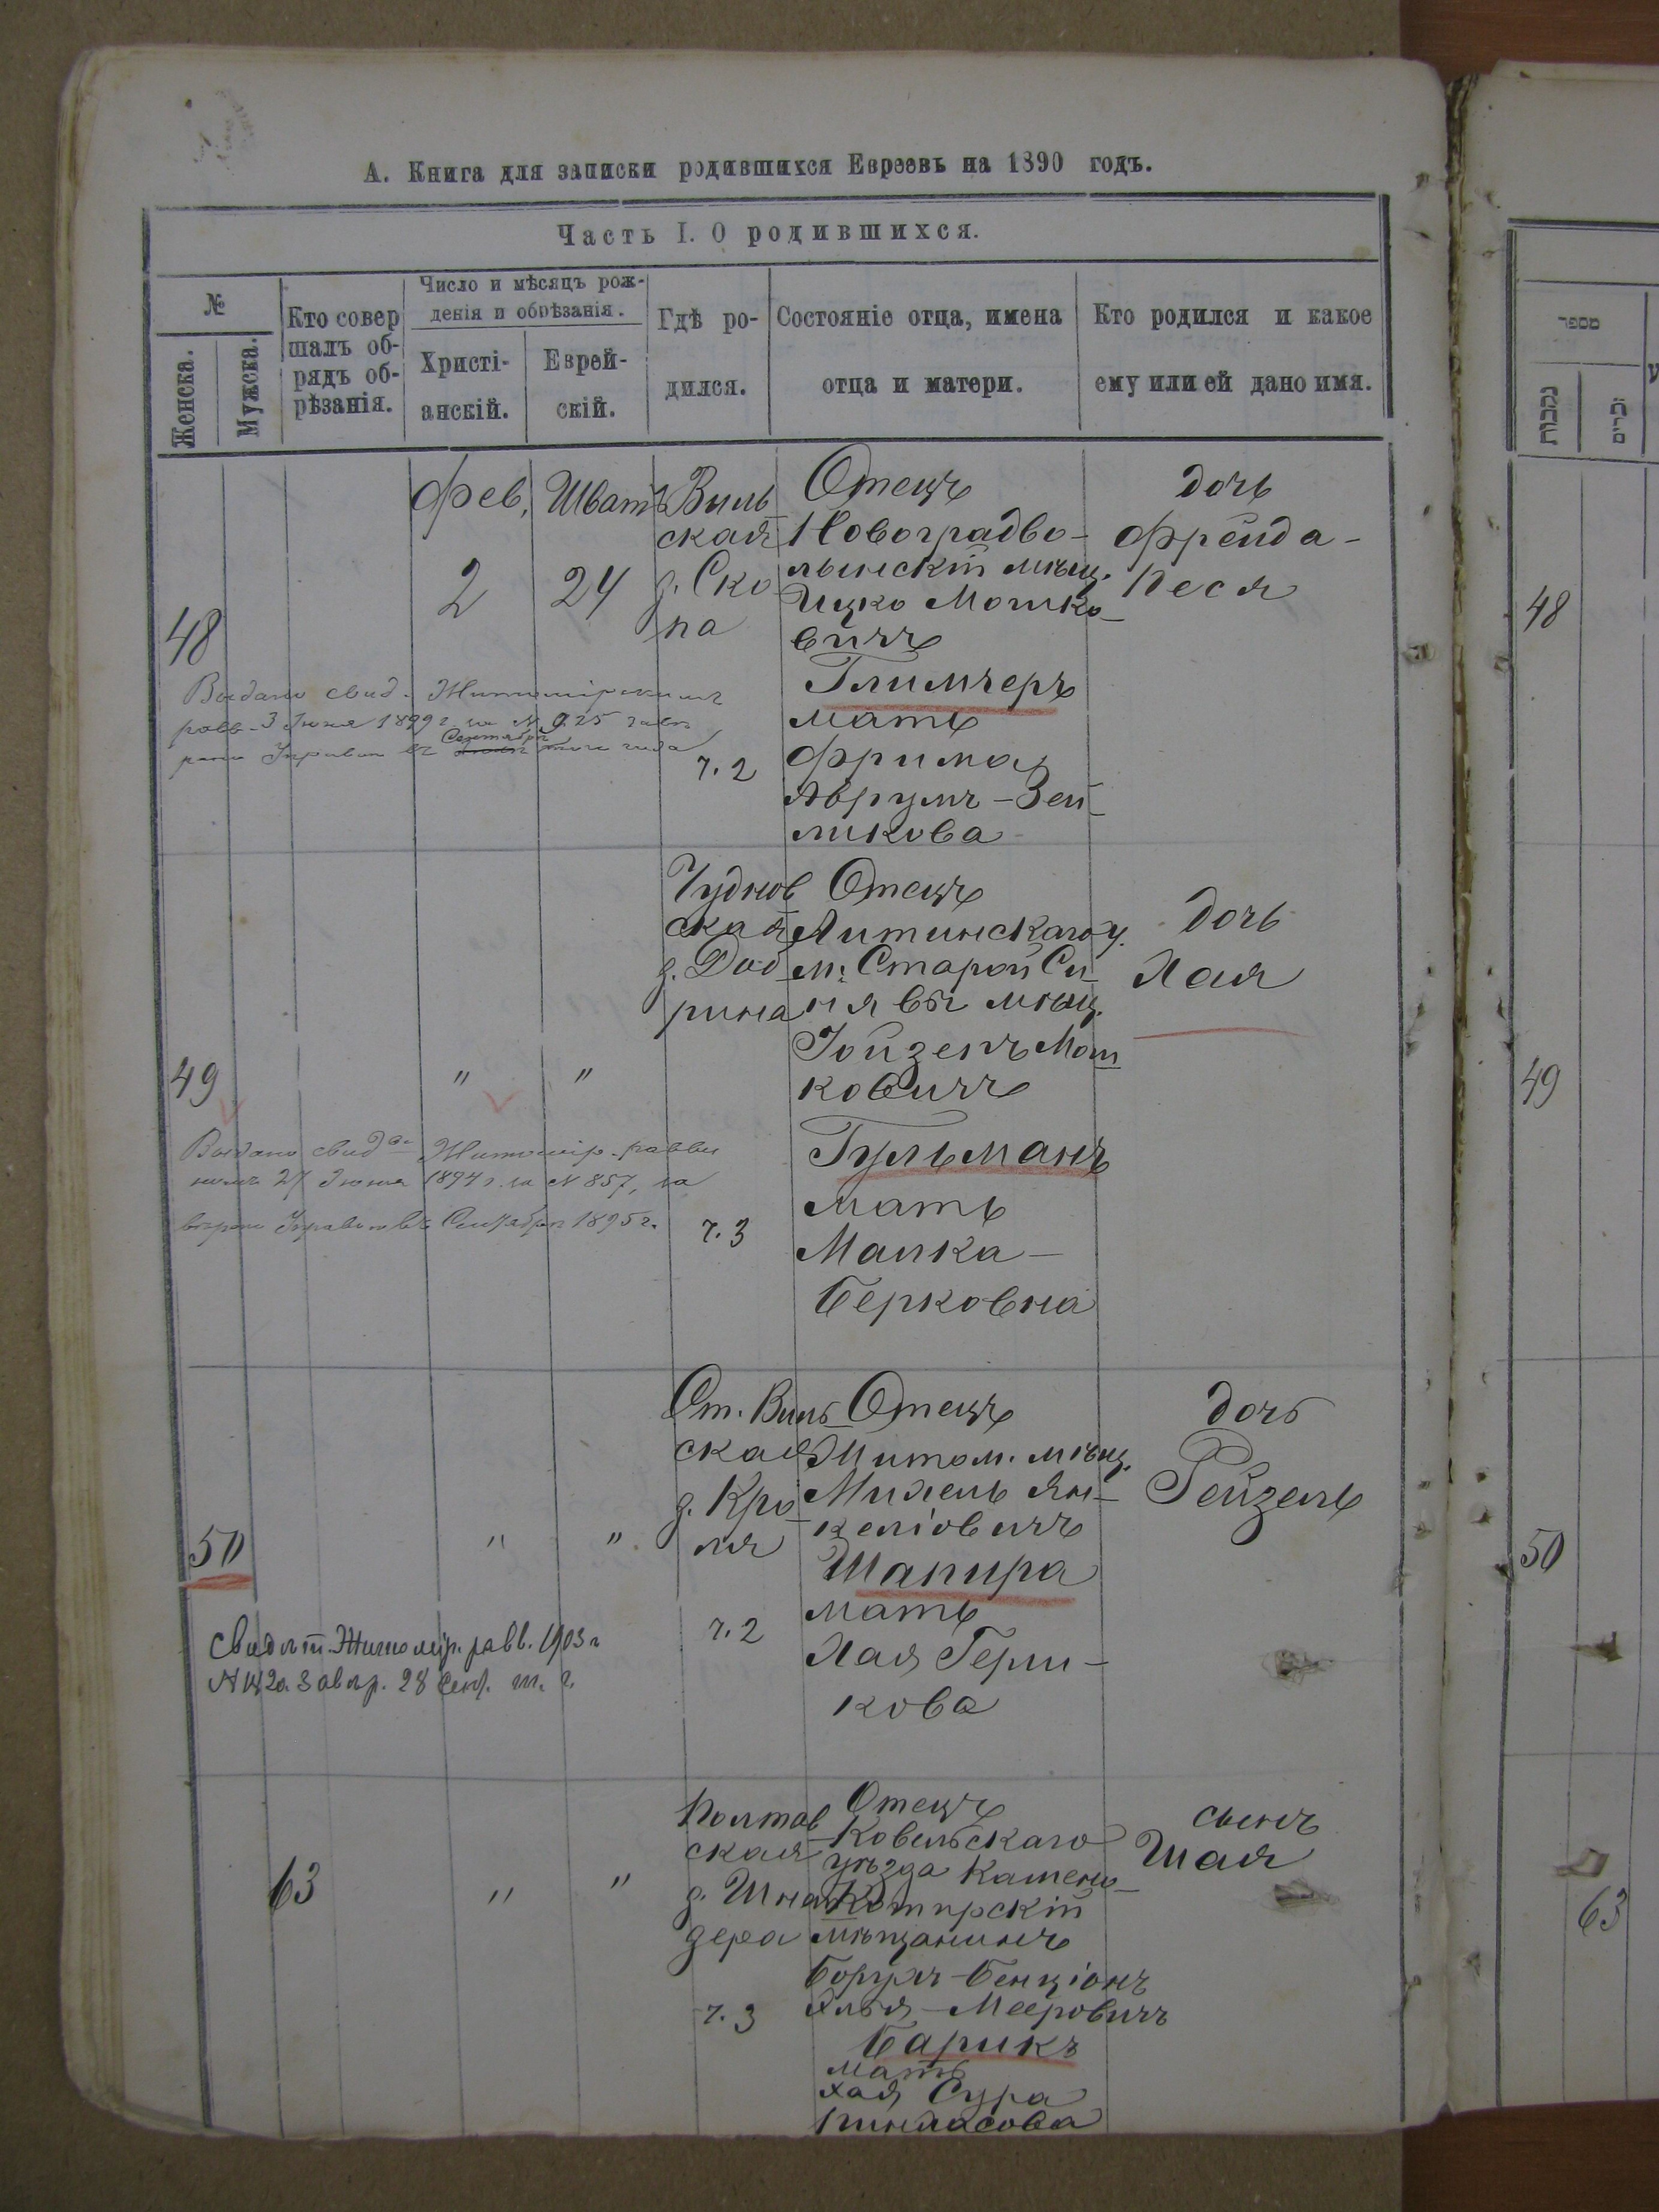 А. Книга для записки родившихся Евреевъ на 1890 годъ.
Часть I. О родившихся.
№
Женска.
Мужска.
Кто совер
шалъ об-
рядъ об-
рѣзанія.
Число и мѣсяцъ рож-
денія и обрѣзанія.
Христі-
анскій.
Еврей-
скій.
Гдѣ ро-
дился.
Состояніе отца, имена
отца и матери.
Кто родился и какое
ему или ей дано имя.
48
Фев.
2
Шватъ
24
Виль
ская
д. Ско
па
ч. 2
Отецъ
Новоградво-
лынскій мѣщ.
Ицко Мошко-
вичъ
Глимчеръ
мать
Фрима
Аврумъ-Зей
ликова
дочь
Фрейда-
Песя
Выдано свид. Житомірскимъ
равв. 3 Іюня 1899 г. за №
Сентября того года
49
"
"
Чуднов
ская
д. Дод
рина
ч. 3
Отецъ
Литинскаго у.
м. Старой Си-
нявы мѣщ.
Іойзепъ Мош
ковичъ
Гульманъ
мать
Малка-
Берковна
дочь
Хая
Выдано свид. Житомір. равви
номъ 27 Іюня 1894 г. за № 857, за
Управою въ Сентябрѣ 1895 г.
50
"
"
Ст. Виль
ская
д. Кро
ля
ч. 2
Отецъ
Житом. мѣщ.
Михель Ян-
келіовичъ
Шапира
мать
Хая Герш-
кова
дочь
Рейзель
Свидѣт. Житомір. равв. 1903 г
28 Сент. т. г.
63
"
"
Полтав
ская
д. Шнай
дера
ч. 3
Отецъ
Ковельскаго
уѣзда Камено-
Коширскій
мѣщанинъ
Борухъ-Бенціонъ
Хлья-Мееровичъ
Барикъ
мать
Хая Сура
Пинхасова
сынъ
Шая
מספר
נקבות
זכרים
48
49
50
63